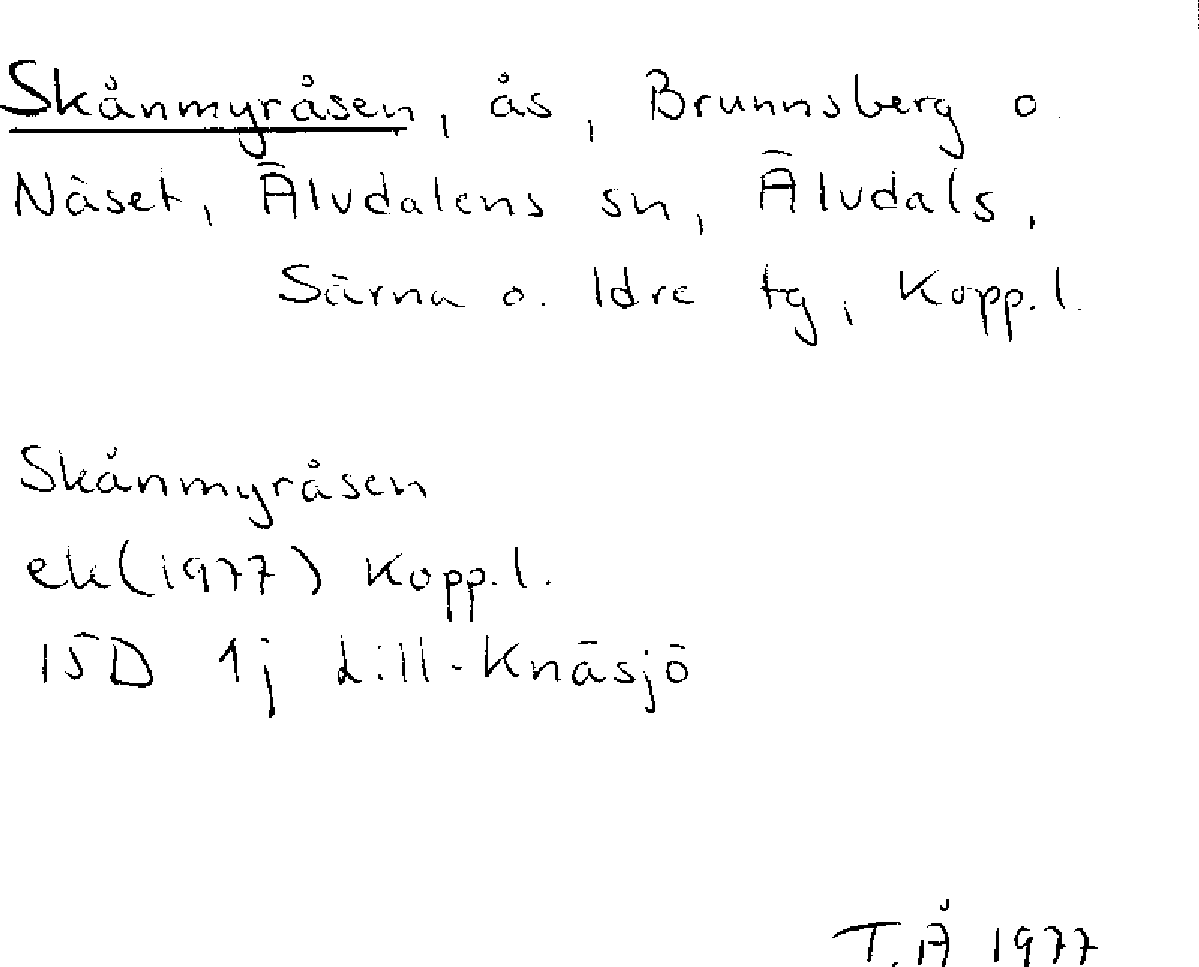 Skånmyråsen, ås, Brunnsberg o.
Näset, Älvdalens sn, Älvdals,
Särna o. Idre tg, Kopp.l.
Skånmyråsen
ek(1977) Kopp.l.
15D 1j Lill-Knäsjö
T.Å 1977